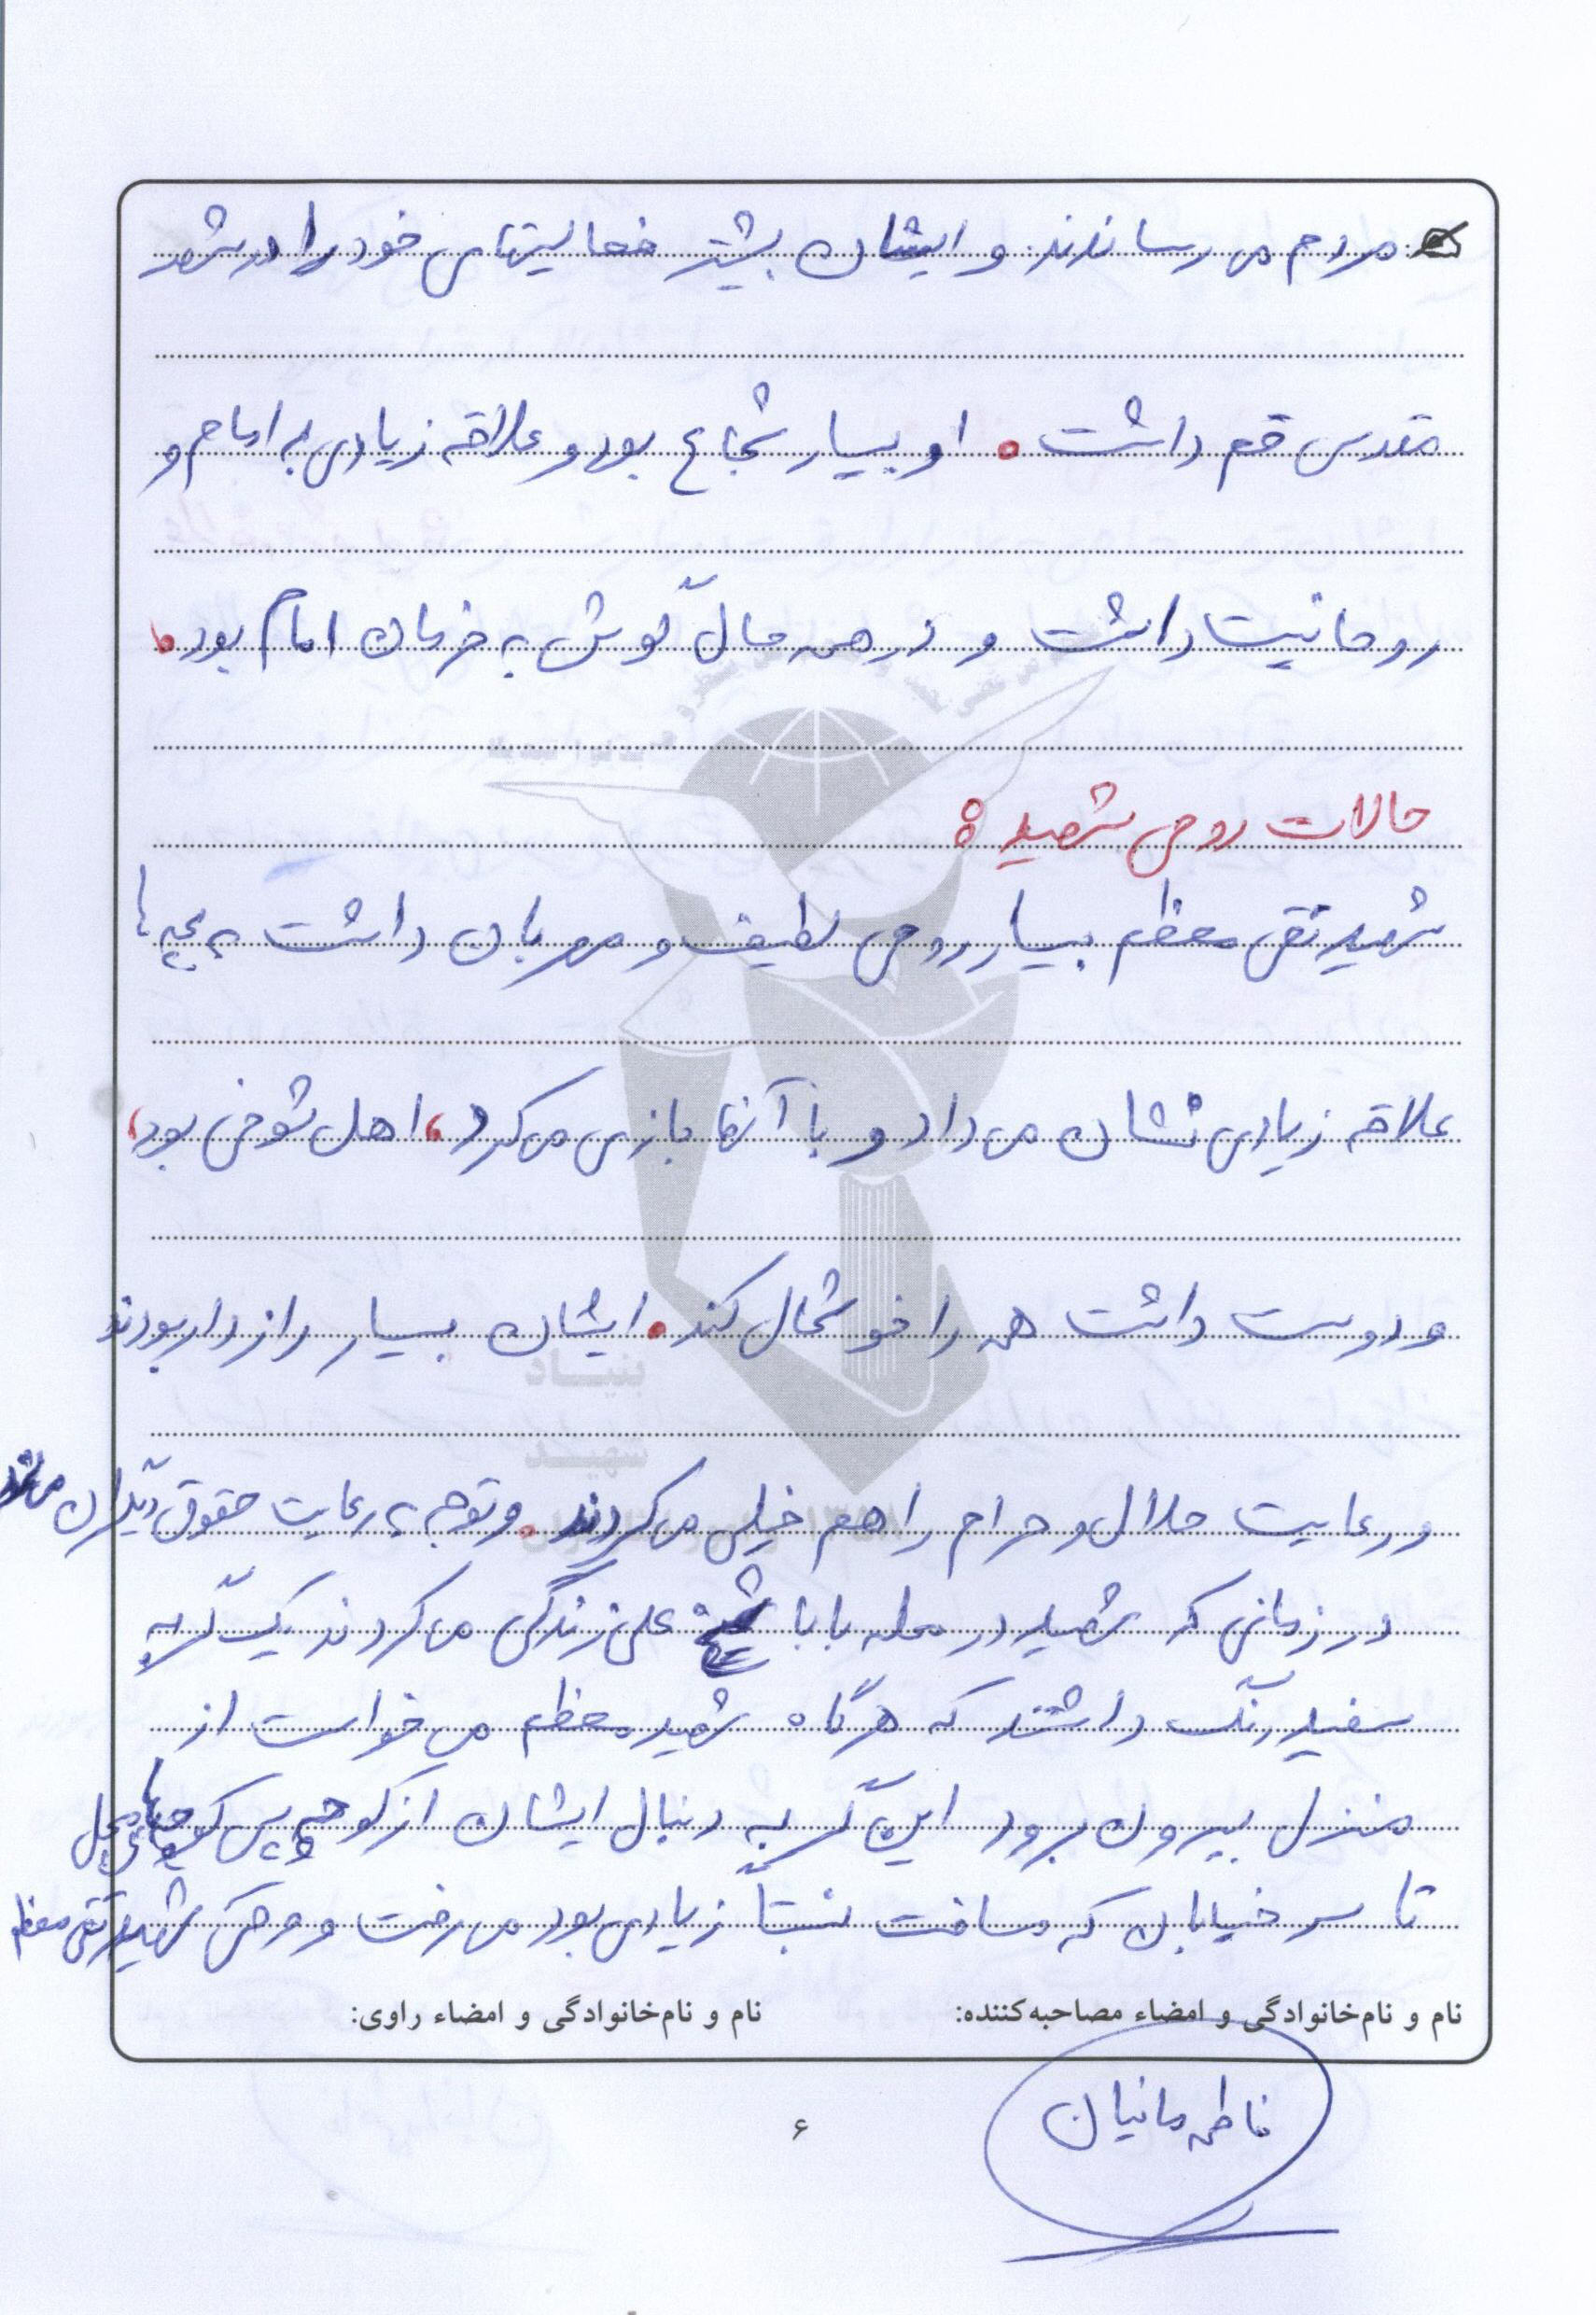 مردم می رساندند. و ایشان بیشتر فعالیتهای خود را در شهر
مقدس قم داشت. او بسیار شجاع بود و علاقه زیادی به امام و
روحانیت داشت و در همه حال گوش به فرمان امام بود.
حالات روحی شهید:
شهید تقی معظم بسیار روحی لطیف و مهربان داشت به بچه ها
علاقه زیادی نشان می داد و با آنها بازی می کرد، اهل شوخی بود،
و دوست داشت همه را خوشحال کند. ایشان بسیار رازدار بودند
و رعایت حلال و حرام را هم خیلی می کردند. و توجه به رعایت حقوق دیگران
در زمانی که شهید در محله بابا شیخ علی زندگی می کردند یک گربه
سفید رنگ داشتند که هرگاه شهید معظم می خواست از
منزل بیرون برود این گربه به دنبال ایشان از کوچه پس کوچه های محل
تا سر خیابان که مسافت نسبتاً زیادی بود می رفت و وقتی شهید تقی معظم
نام و نام‌خانوادگی و امضاء مصاحبه‌کننده: نام و نام‌خانوادگی و امضاء راوی:
فاطمه مانیان
۶
بنیاد
شهید